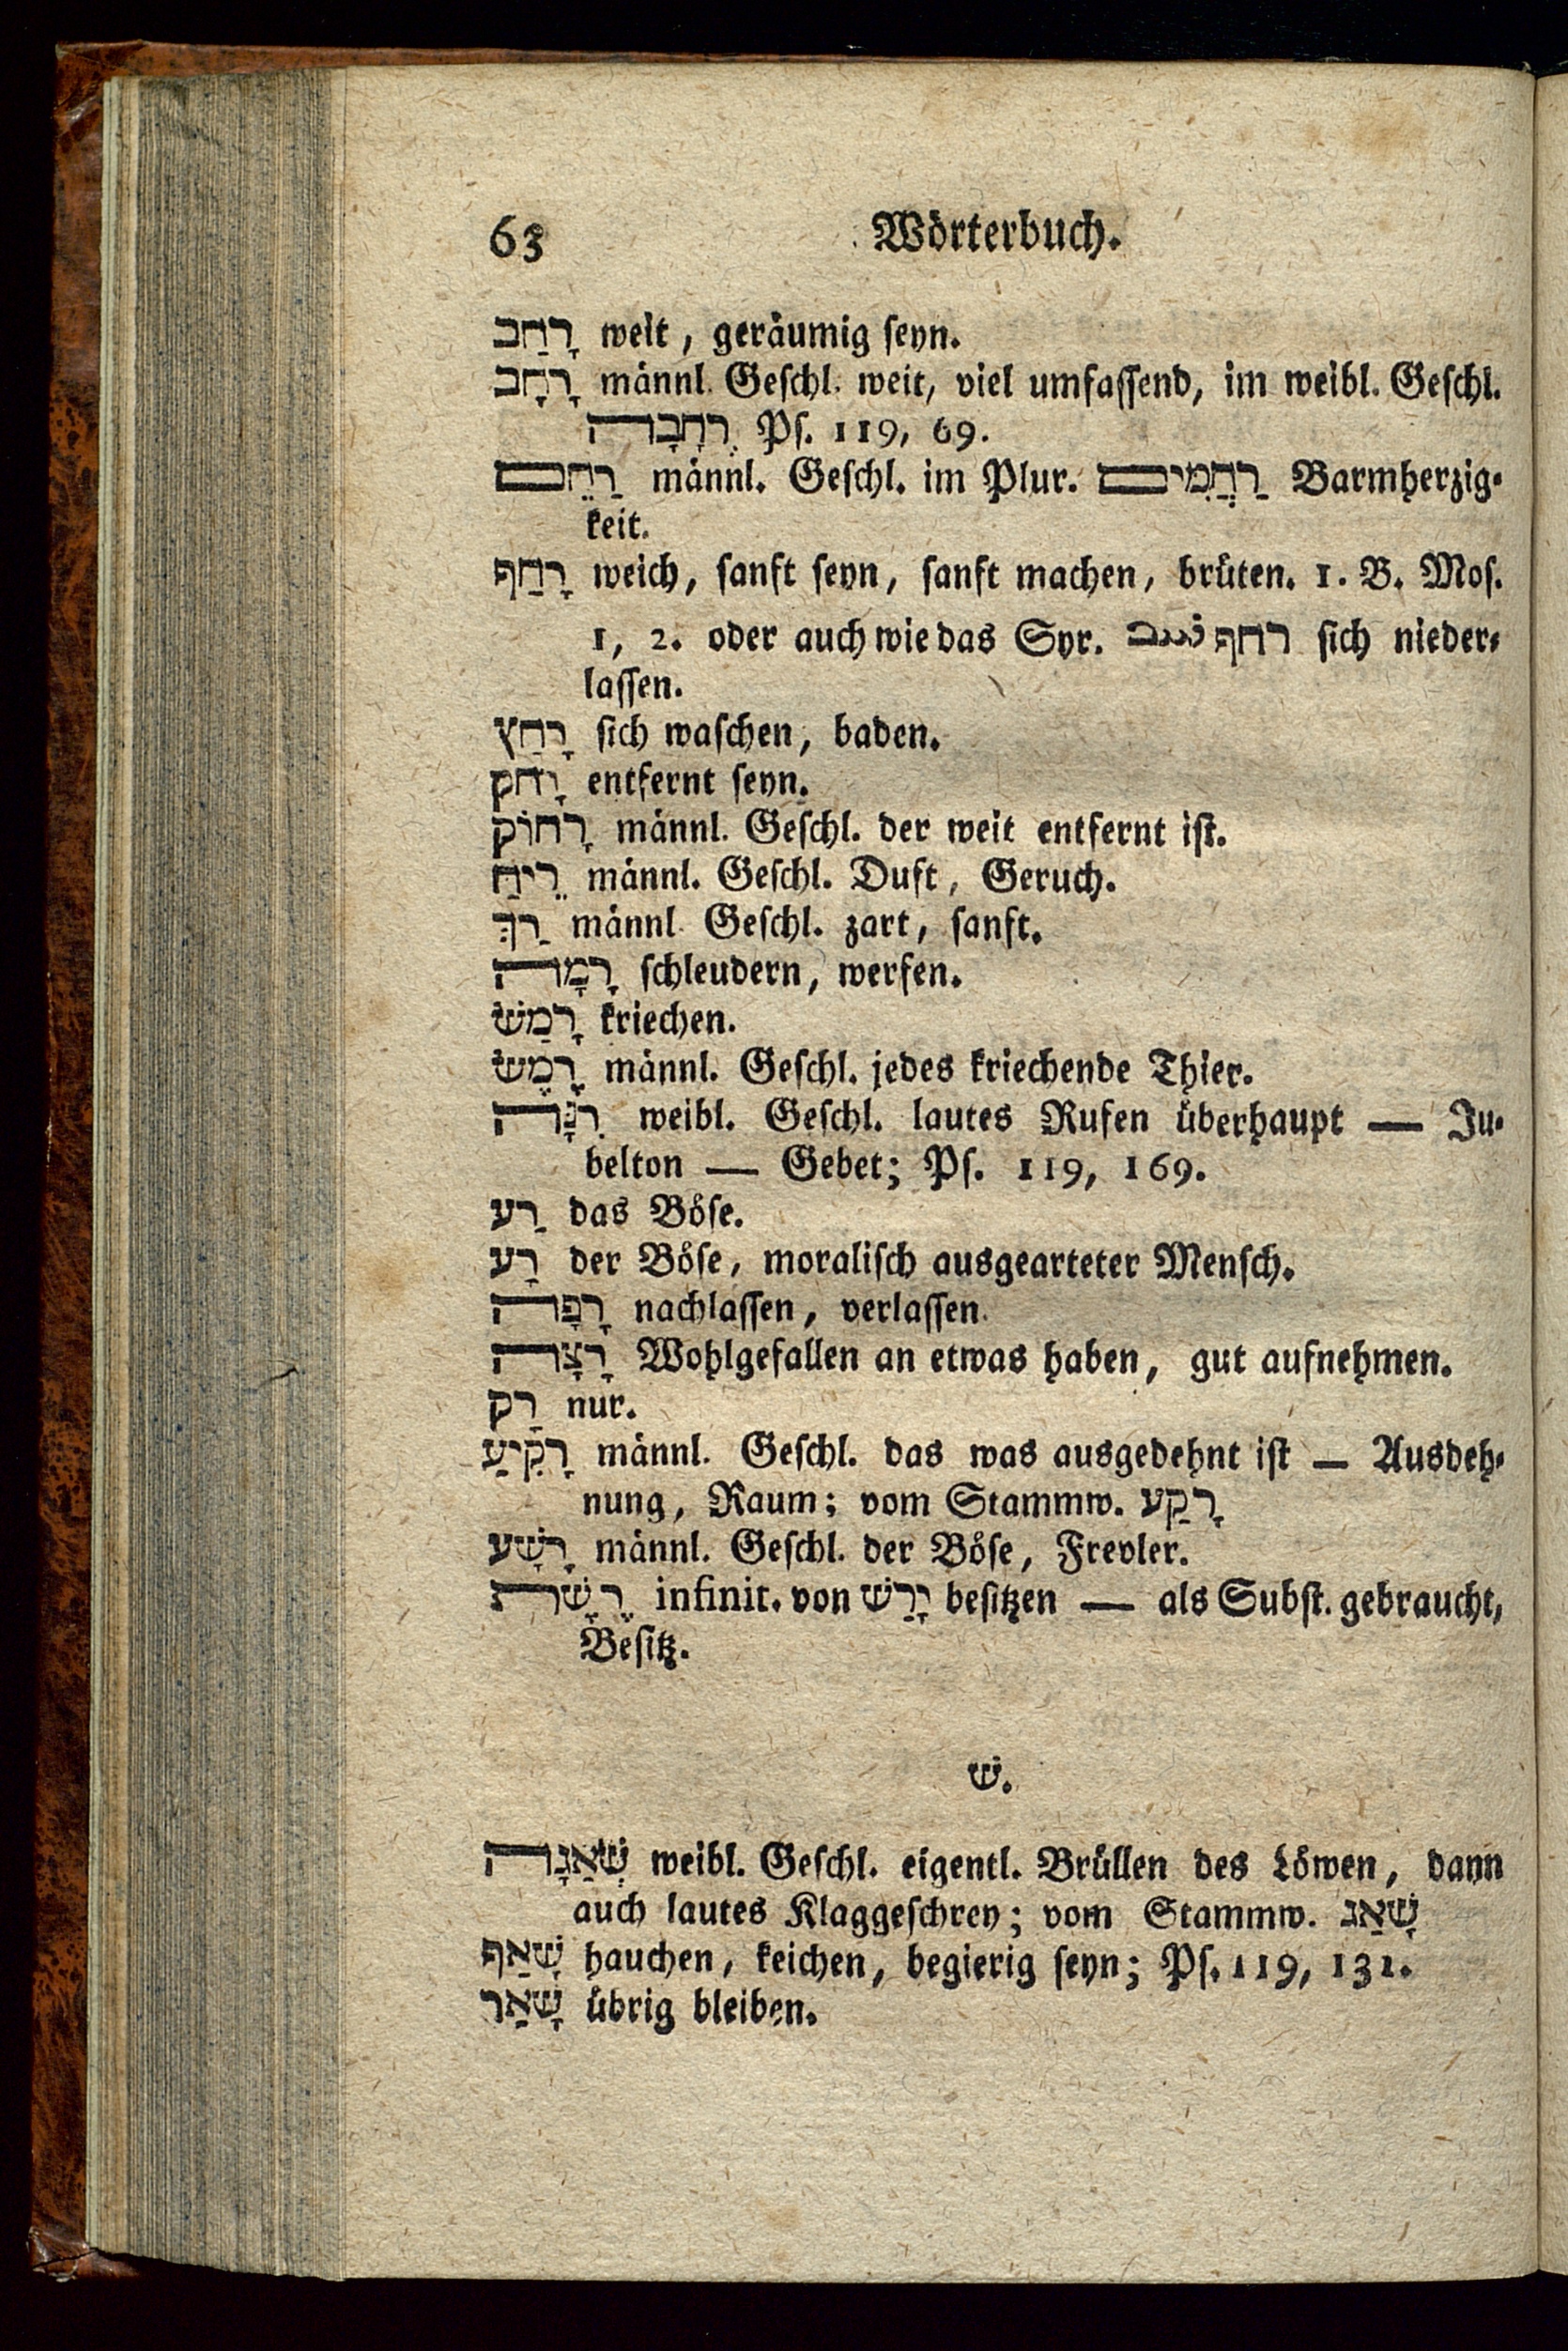 63 Wörterbuch.
רָחַב weit, geräumig seyn.
רָחָב männl. Geschl. weit, viel umfassend, im weibl. Geschl.
רְחָבָה Ps. 119, 69.
רַחֵם männl. Geschl. im Plur. רַחֲמִים Barmherzig-
keit.
רָחַף weich, sanft seyn, sanft machen, brüten. 1. B. Mos.
1, 2. oder auch wie das Syr. רחף sich nieder-
lassen.
רָחַץ sich waschen, baden.
רָחק entfernt seyn.
רָחוֹק männl. Geschl. der weit entfernt ist.
רֵיחַ männl. Geschl. Duft, Geruch.
רַךְ männl. Geschl. zart, sanft.
רָמָה schleudern, werfen.
רָמַשׂ kriechen.
רָמֶשׂ männl. Geschl. jedes kriechende Thier.
רִנָּה weibl. Geschl. lautes Rufen überhaupt — Ju-
belton — Gebet; Ps. 119, 169.
רַע das Böse.
רָע der Böse, moralisch ausgearteter Mensch.
רָפָה nachlassen, verlassen.
רָצָה Wohlgefallen an etwas haben, gut aufnehmen.
רַק nur.
רָקִיעַ männl. Geschl. das was ausgedehnt ist — Ausdeh-
nung, Raum; vom Stammw. רָקַע
רָשָׁע männl. Geschl. der Böse, Frevler.
רֶשָׁה infinit. von יָרַשׁ besitzen — als Subst. gebraucht,
Besitz.
שׁ.
שְׁאַגָה weibl. Geschl. eigentl. Brüllen des Löwen, dann
auch lautes Klaggeschrey; vom Stammw. שָׁאַג
שָׁאַף hauchen, keichen, begierig seyn; Ps. 119, 131.
שָׁאַר übrig bleiben.